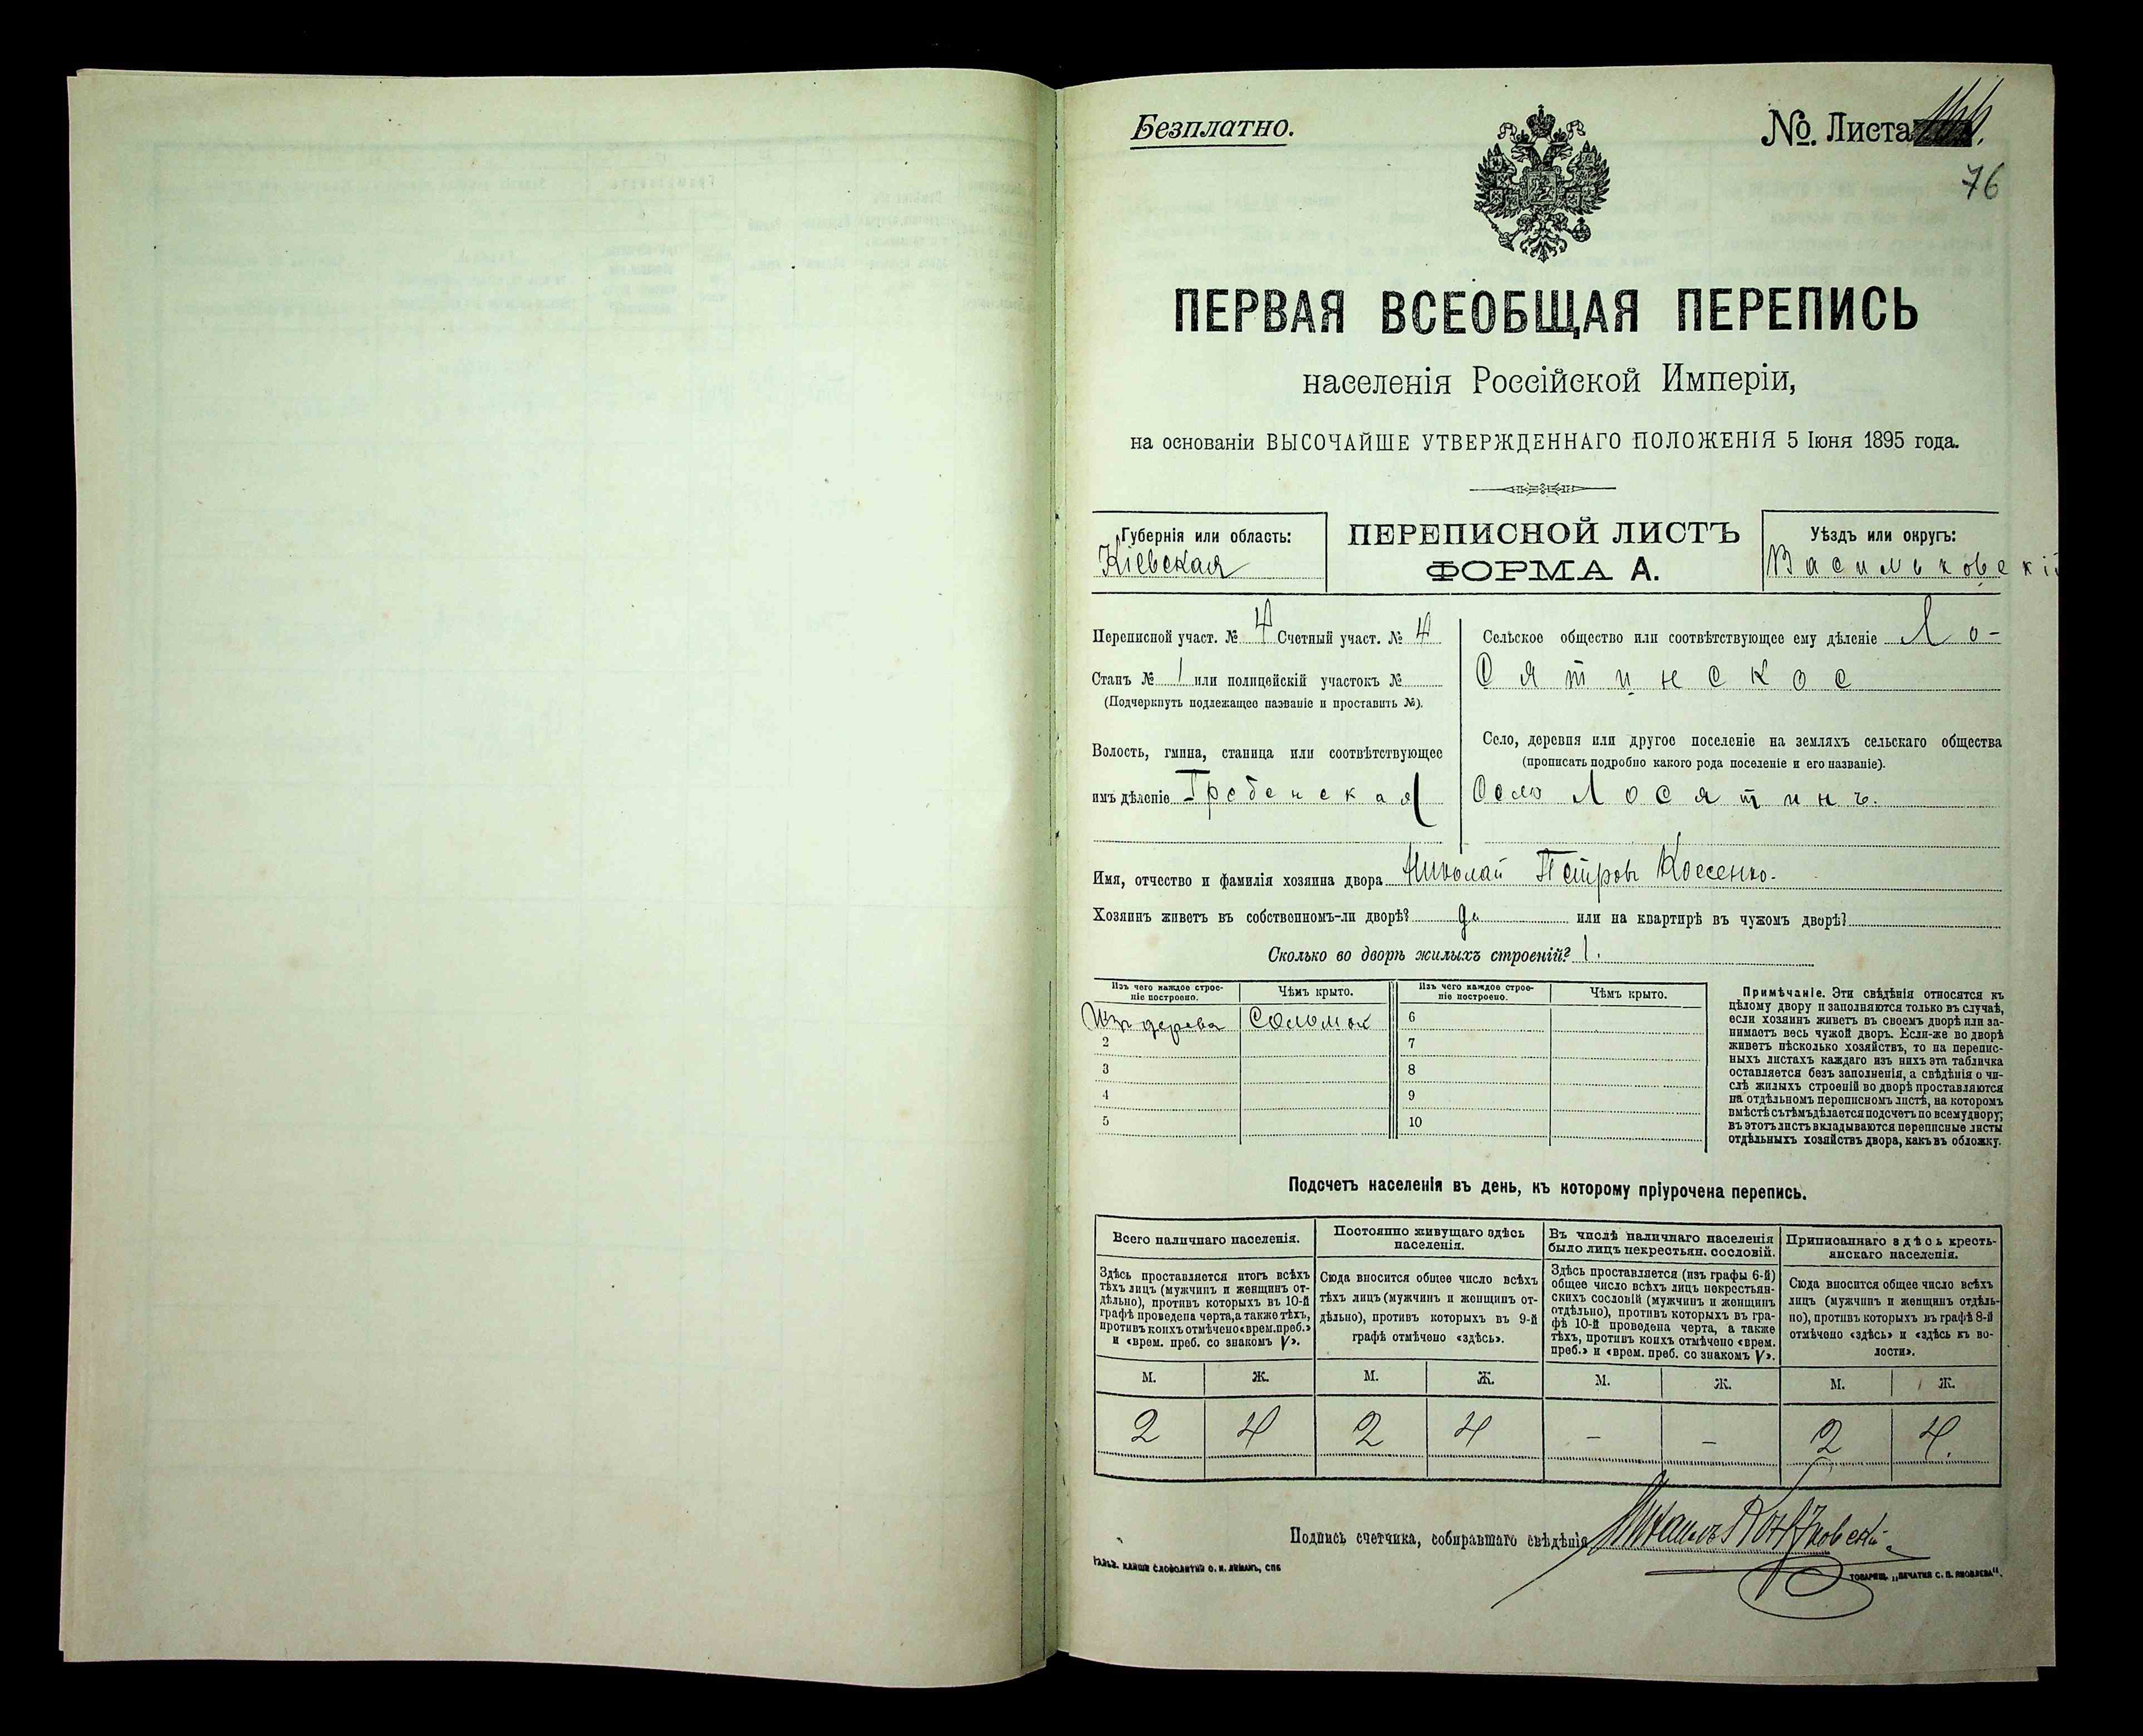 Безплатно.
№ Листа
76
ПЕРВАЯ ВСЕОБЩАЯ ПЕРЕПИСЬ
населенія Россійской Имперіи,
на основаніи ВЫСОЧАЙШЕ УТВЕРЖДЕННАГО ПОЛОЖЕНІЯ 5 Іюня 1895 года.
Губернія или область:
Кіевская
ПЕРЕПИСНОЙ ЛИСТЪ
ФОРМА А.
Уѣздъ или округъ:
Васильковскій
Переписной участ. № 4 Счетный участ. № 4
Станъ № 1 или полицейскій участокъ №
(Подчеркнуть подлежащее названіе и проставить №).
Волость, гмина, станица или соотвѣтствующее
имъ дѣленіе Гребенская
Сельское общество или соотвѣтствующее ему дѣленіе Ло-
сятинское
Село, деревня или другое поселеніе на земляхъ сельскаго общества
(прописать подробно какого рода поселеніе и его названіе).
Село Лосятинъ.
Имя, отчество и фамилія хозяина двора Николай Петровъ Коссенко.
Хозяинъ живетъ въ собственномъ-ли дворѣ? да или на квартирѣ въ чужомъ дворѣ?
Сколько во дворѣ жилыхъ строеній? 1.
Изъ чего каждое строе-
ніе построено.
Чѣмъ крыто.
Изъ чего каждое строе-
ніе построено.
Чѣмъ крыто.
Изъ дерева Соломой 6
2 7
3 8
4 9
5 10
Примѣчаніе. Эти свѣдѣнія относятся къ
цѣлому двору и заполняются только въ случаѣ,
если хозяинъ живетъ въ своемъ дворѣ или за-
нимаетъ весь чужой дворъ. Если-же во дворѣ
живетъ нѣсколько хозяйствъ, то на перепис-
ныхъ листахъ каждаго изъ нихъ эта табличка
оставляется безъ заполненія, а свѣдѣнія о чи-
слѣ жилыхъ строеній во дворѣ проставляются
на отдѣльномъ переписномъ листѣ, на которомъ
вмѣстѣ съ тѣмъ дѣлается подсчетъ по всему двору;
въ этотъ листъ вкладываются переписные листы
отдѣльныхъ хозяйствъ двора, какъ въ обложку.
Подсчетъ населенія въ день, къ которому пріурочена перепись.
Всего наличнаго населенія.
Здѣсь проставляется итогъ всѣхъ
тѣхъ лицъ (мужчинъ и женщинъ от-
дѣльно), противъ которыхъ въ 10-й
графѣ проведена черта, а также тѣхъ,
противъ коихъ отмѣчено «врем. преб.»
и «врем. преб. со знакомъ V».
Постоянно живущаго здѣсь
населенія.
Сюда вносится общее число всѣхъ
тѣхъ лицъ (мужчинъ и женщинъ от-
дѣльно), противъ которыхъ въ 9-й
графѣ отмѣчено «здѣсь».
Въ числѣ наличнаго населенія
было лицъ некрестьян. сословій.
Здѣсь проставляется (изъ графы 6-й)
общее число всѣхъ лицъ некрестьян-
скихъ сословій (мужчинъ и женщинъ
отдѣльно), противъ которыхъ въ гра-
фѣ 10-й проведена черта, а также
тѣхъ, противъ коихъ отмѣчено «врем.
преб.» и «врем. преб. со знакомъ V».
Приписаннаго здѣсь кресть-
янскаго населенія.
Сюда вносится общее число всѣхъ
лицъ (мужчинъ и женщинъ отдѣль-
но), противъ которыхъ въ графѣ 8-й
отмѣчено «здѣсь» и «здѣсь къ во-
лости».
М. Ж. М. Ж. М. Ж. М. Ж.
2 4 2 4 - - 2 4.
Подпись счетчика, собиравшаго свѣдѣнія
ТОВАРИЩ. „ПЕЧАТНЯ С. П. ЯКОВЛЕВА“.